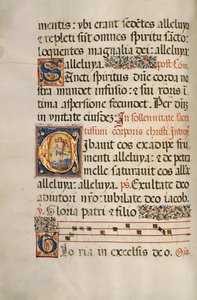 mentis: ubi erant sedetes alleluya:
et repleti sūt omnes spiritu sācto:
loquentes magnalia dei: alleluya:
alleluya. post Com̄.
Sancti spiritus dn̄e corda no
stra mundet infusio: & sui rōris in
tima aspersione fecundet. Per dn̄m
in unitate eiusdez. In sollemnitate sacra
tissimi corporis christi. Introit
Cibauit eos ex adipe fru
menti alleluya: & de petra
melle saturauit eos alle
luya: alleluya: alleluya. ps. Exultate deo
adiutori nr̄o: iubilate deo iacob.
Gloria patri & filio
Gloria in excelsis de o.